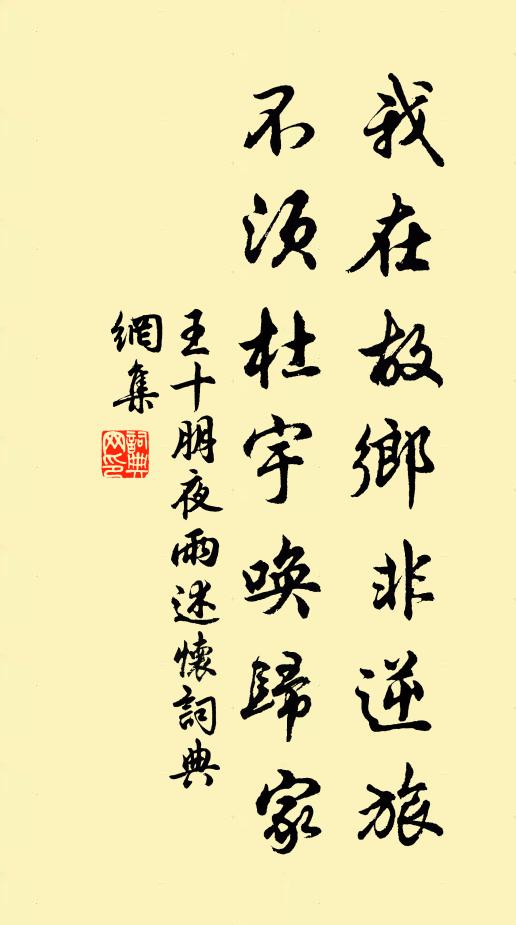 我在故鄉非逆旅
不須杜宇喚歸家
王十朋夜雨述懷詞典
網集
詞典網印